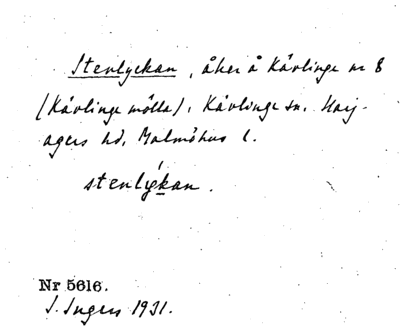 Stenlyckan, åker å Kävlinge nr 8
(Kävlinge mölla), Kävlinge sn. Harj-
agers hd, Malmöhus l.
stenlýkan.
Nr 5616.
I. Ingers 1931.